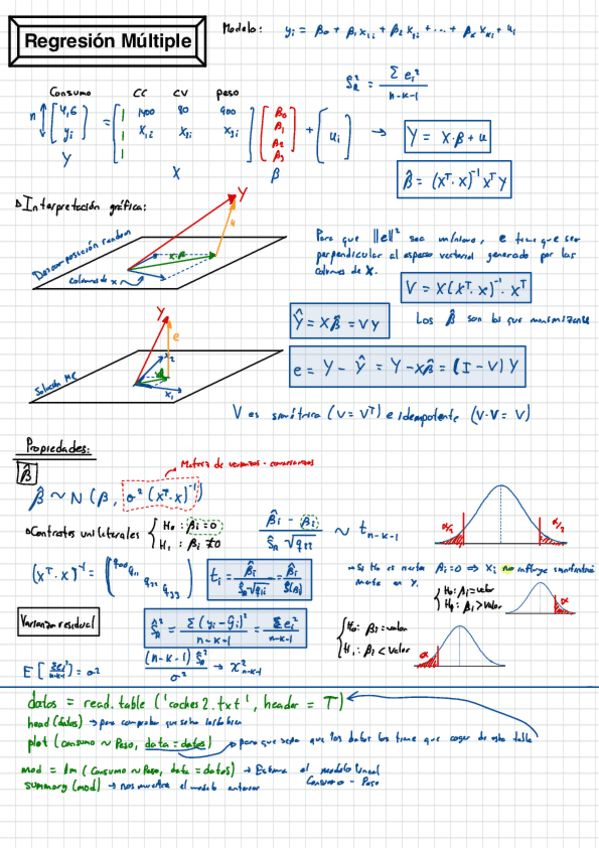 Regresión Múltiple
Modelo: yᵢ = β₀ + β₁x₁ᵢ + β₂x₂ᵢ + ... + βₖxₖᵢ + uᵢ
ŝ_R² = Σeᵢ² / n-k-1
Consumo CC CV peso
n [4,6 yᵢ] = [1 1 1 1 1400 x₁ᵢ 80 x₂ᵢ 900 x₃ᵢ] [β₀ β₁ β₂ β₃] + [uᵢ] → Y = X·β + u
Y X β
β̂ = (Xᵀ·X)⁻¹XᵀY
Interpretación gráfica:
Y
e
X·β
Descomposición random
columnas de X
Para que ‖e‖² sea mínimo, e tiene que ser
perpendicular al espacio vectorial generado por las
columnas de X.
V = X(Xᵀ·X)⁻¹·Xᵀ
Ŷ = Xβ̂ = VY
Los β̂ son los que
Y
e
x₂
x₁
Solución MC
e = Y - Ŷ = Y - Xβ̂ = (I - V)Y
V es simétrica (V = Vᵀ) e idempotente (V·V = V)
Propiedades:
β̂
Matriz de varianzas - covarianzas
β̂ ~ N(β, σ²(Xᵀ·X)⁻¹)
Contrastes unilaterales { H₀: βᵢ = 0
H₁: βᵢ ≠ 0
β̂ᵢ - βᵢ / ŝ_R √qᵢᵢ ~ t n-k-1
α/2 α/2
(Xᵀ·X)⁻¹ = ( q₀₀ q₁₁ q₂₂ q₃₃ )
tᵢ = β̂ᵢ / ŝ_R√qᵢᵢ = β̂ᵢ / S(β̂ᵢ)
→ Si H₀ es cierta βᵢ = 0 ⇒ xᵢ no influye
mente en Y.
{ H₀: βᵢ = valor
H₁: βᵢ > valor
α
Varianza residual
ŝ_R² = Σ(yᵢ - ŷᵢ)² / n-k-1 = Σeᵢ² / n-k-1
{ H₀: βᵢ = valor
H₁: βᵢ < valor
α
E[Σeᵢ² / n-k-1] = σ²
(n-k-1) ŝ_R² / σ² → χ² n-k-1
datos = read.table ('coches2.txt', header = T)
head(datos) → para comprobar que
plot (consumo ~ Peso, data = datos) → para que sepa que los datos los tiene que coger de esta tabla
mod = lm (Consumo ~ Peso, data = datos) → Estima el modelo lineal
Consumo - Peso
summary (mod) → nos muestra el modelo anterior